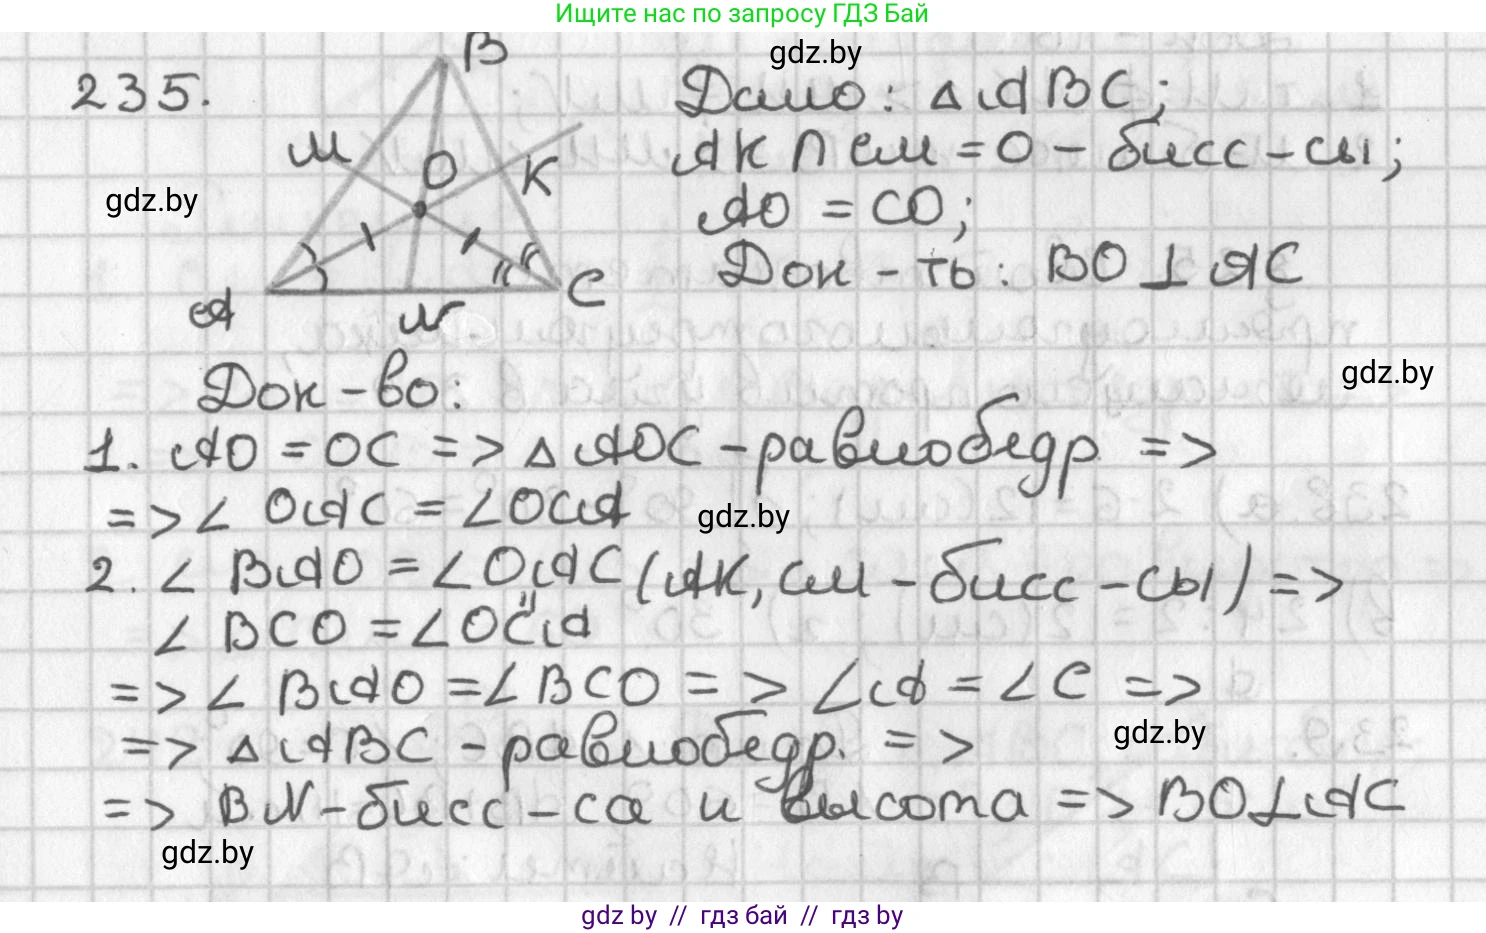 Ищите нас по запросу ГДЗ Бай
gdz.by
235.
B
M
O
K
A
N
C
Дано: △ABC;
AK ∩ CM = O - бисс-сы;
AO = CO;
Док-ть: BO ⊥ AC
gdz.by
gdz.by
Док-во:
1. AO = OC => △AOC - равнобедр. =>
=> ∠OAC = ∠OCA
gdz.by
2. ∠BAO = ∠OAC (AK, CM - бисс-сы) =>
∠BCO = ∠OCA
=> ∠BAO = ∠BCO => ∠A = ∠C =>
=> △ABC - равнобедр. =>
gdz.by
=> BN - бисс-са и высота => BO ⊥ AC
gdz.by
gdz by // гдз бай // гдз by